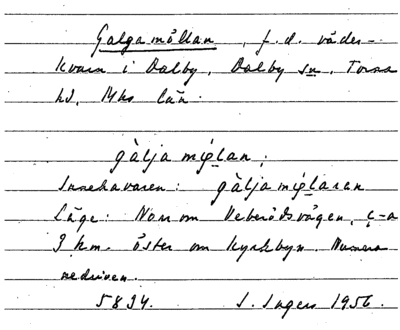 Galgamöllan, f.d. väder-
kvarn i Dalby, Dalby sn, Torna
hd, Mhs län.
gàlja mǿlan;
Innehavaren: gàlja mǿlaren
Läge: Norr om Veberödsvägen, c:a
3 km. öster om kyrkbyn. Numera
nedriven.
5834. S. Ingers 1956.